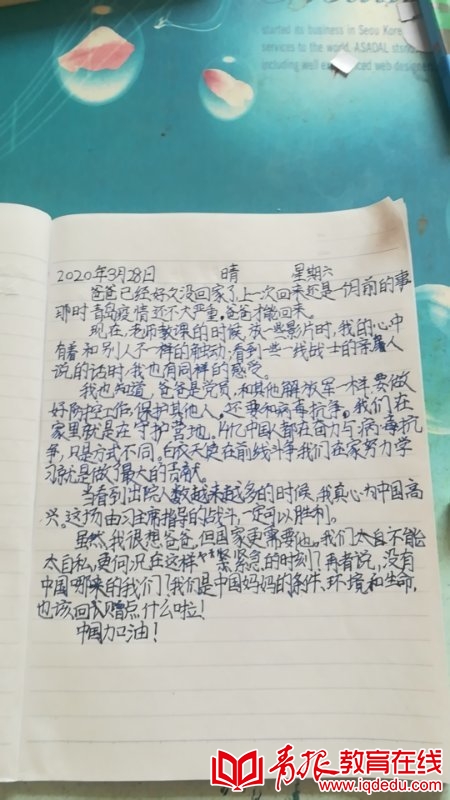 started its business in Seou Kore
services to the world. ASADAL stori
including well
ced web designer
2020年3月28日 晴 星期六
爸爸已经好久没回家了,上一次回来还是一個月前的事
那时青岛疫情还不大严重,爸爸才能回来。
现在,老师教课的时候,放一些影片时,我的心中
有着和别人不一样的触动,看到一些战士的亲属人
说的话时,我也有同样的感受。
我也知道,爸爸是党员,和其他解放军一样,要做
好防护工作,保护其他人。还要和病毒抗争。我们在
家里就是在守护营地。14亿中国人都在奋力与病毒抗
争,只是方式不同,白衣天使在前线斗争,我们在家努力学
习就是做了最大的贡献。
当看到出院人数越来越多的时候,我真心为中国高
兴。这场由习主席指导的战斗,一定可以胜利。
虽然我很想爸爸,但国家更需要他。我们太自不能
太自私,更何况在这样紧紧急的时刻?再者说,没有
中国哪来的我们?我们是中国妈妈的条件、环境和生命,
也该回赠点什么啦!
中国加油!
青报教育在线
www.iqdedu.com